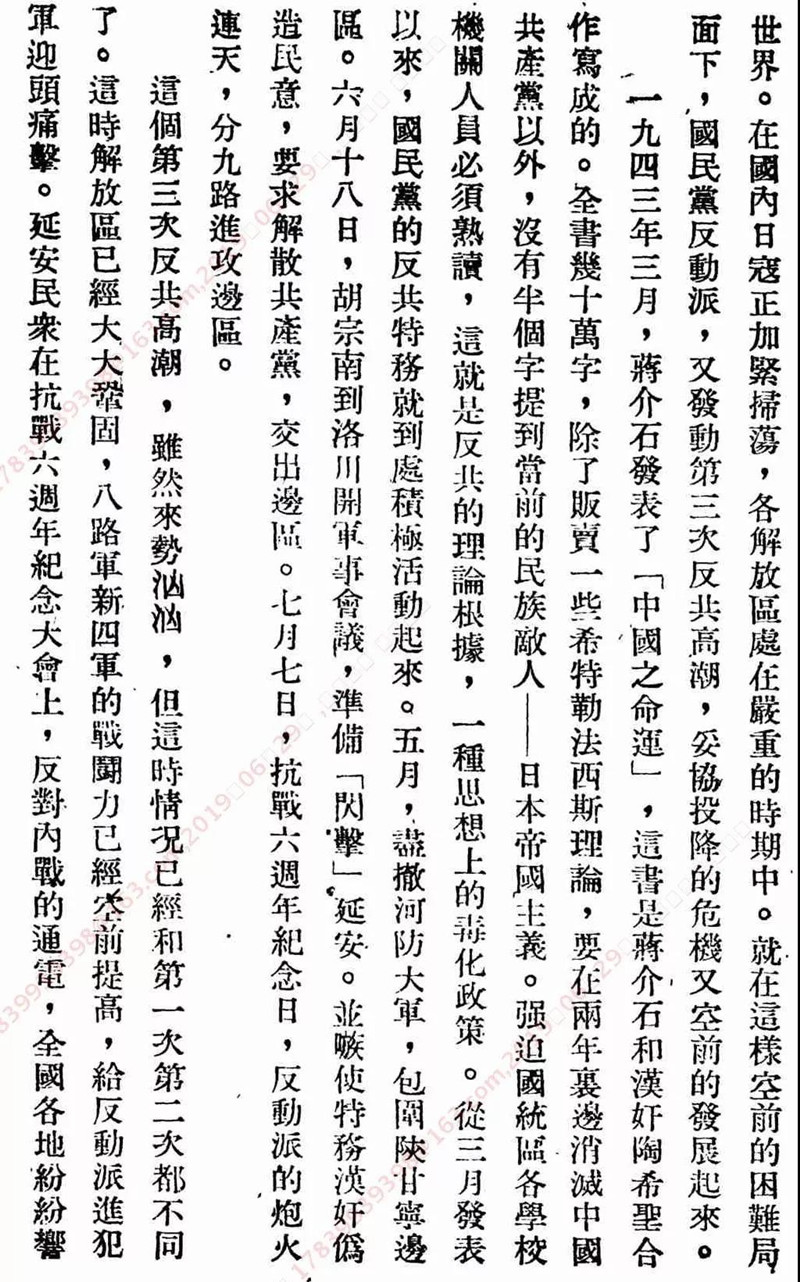 世界。在國內日寇正加緊掃蕩，各解放區處在嚴重的時期中。就在這樣空前的困難局
面下，國民黨反動派，又發動第三次反共高潮，妥協投降的危機又空前的發展起來。
一九四三年三月，蔣介石發表了「中國之命運」，這書是蔣介石和漢奸陶希聖合
作寫成的。全書幾十萬字，除了販賣一些希特勒法西斯理論，要在兩年裏邊消滅中國
共產黨以外，沒有半個字提到當前的民族敵人——日本帝國主義。强迫國統區各學校
機關人員必須熟讀，這就是反共的理論根據，一種思想上的毒化政策。從三月發表
以來，國民黨的反共特務就到處積極活動起來。五月，盡撤河防大軍，包圍陝甘寧邊
區。六月十八日，胡宗南到洛川開軍事會議，準備「閃擊」延安。並嗾使特務漢奸僞
造民意，要求解散共產黨，交出邊區。七月七日，抗戰六週年紀念日，反動派的炮火
連天，分九路進攻邊區。
這個第三次反共高潮，雖然來勢汹汹，但這時情况已經和第一次第二次都不同
了。這時解放區已經大大鞏固，八路軍新四軍的戰鬪力已經空前提高，給反動派進犯
軍迎頭痛擊。延安民衆在抗戰六週年紀念大會上，反對內戰的通電，全國各地紛紛響